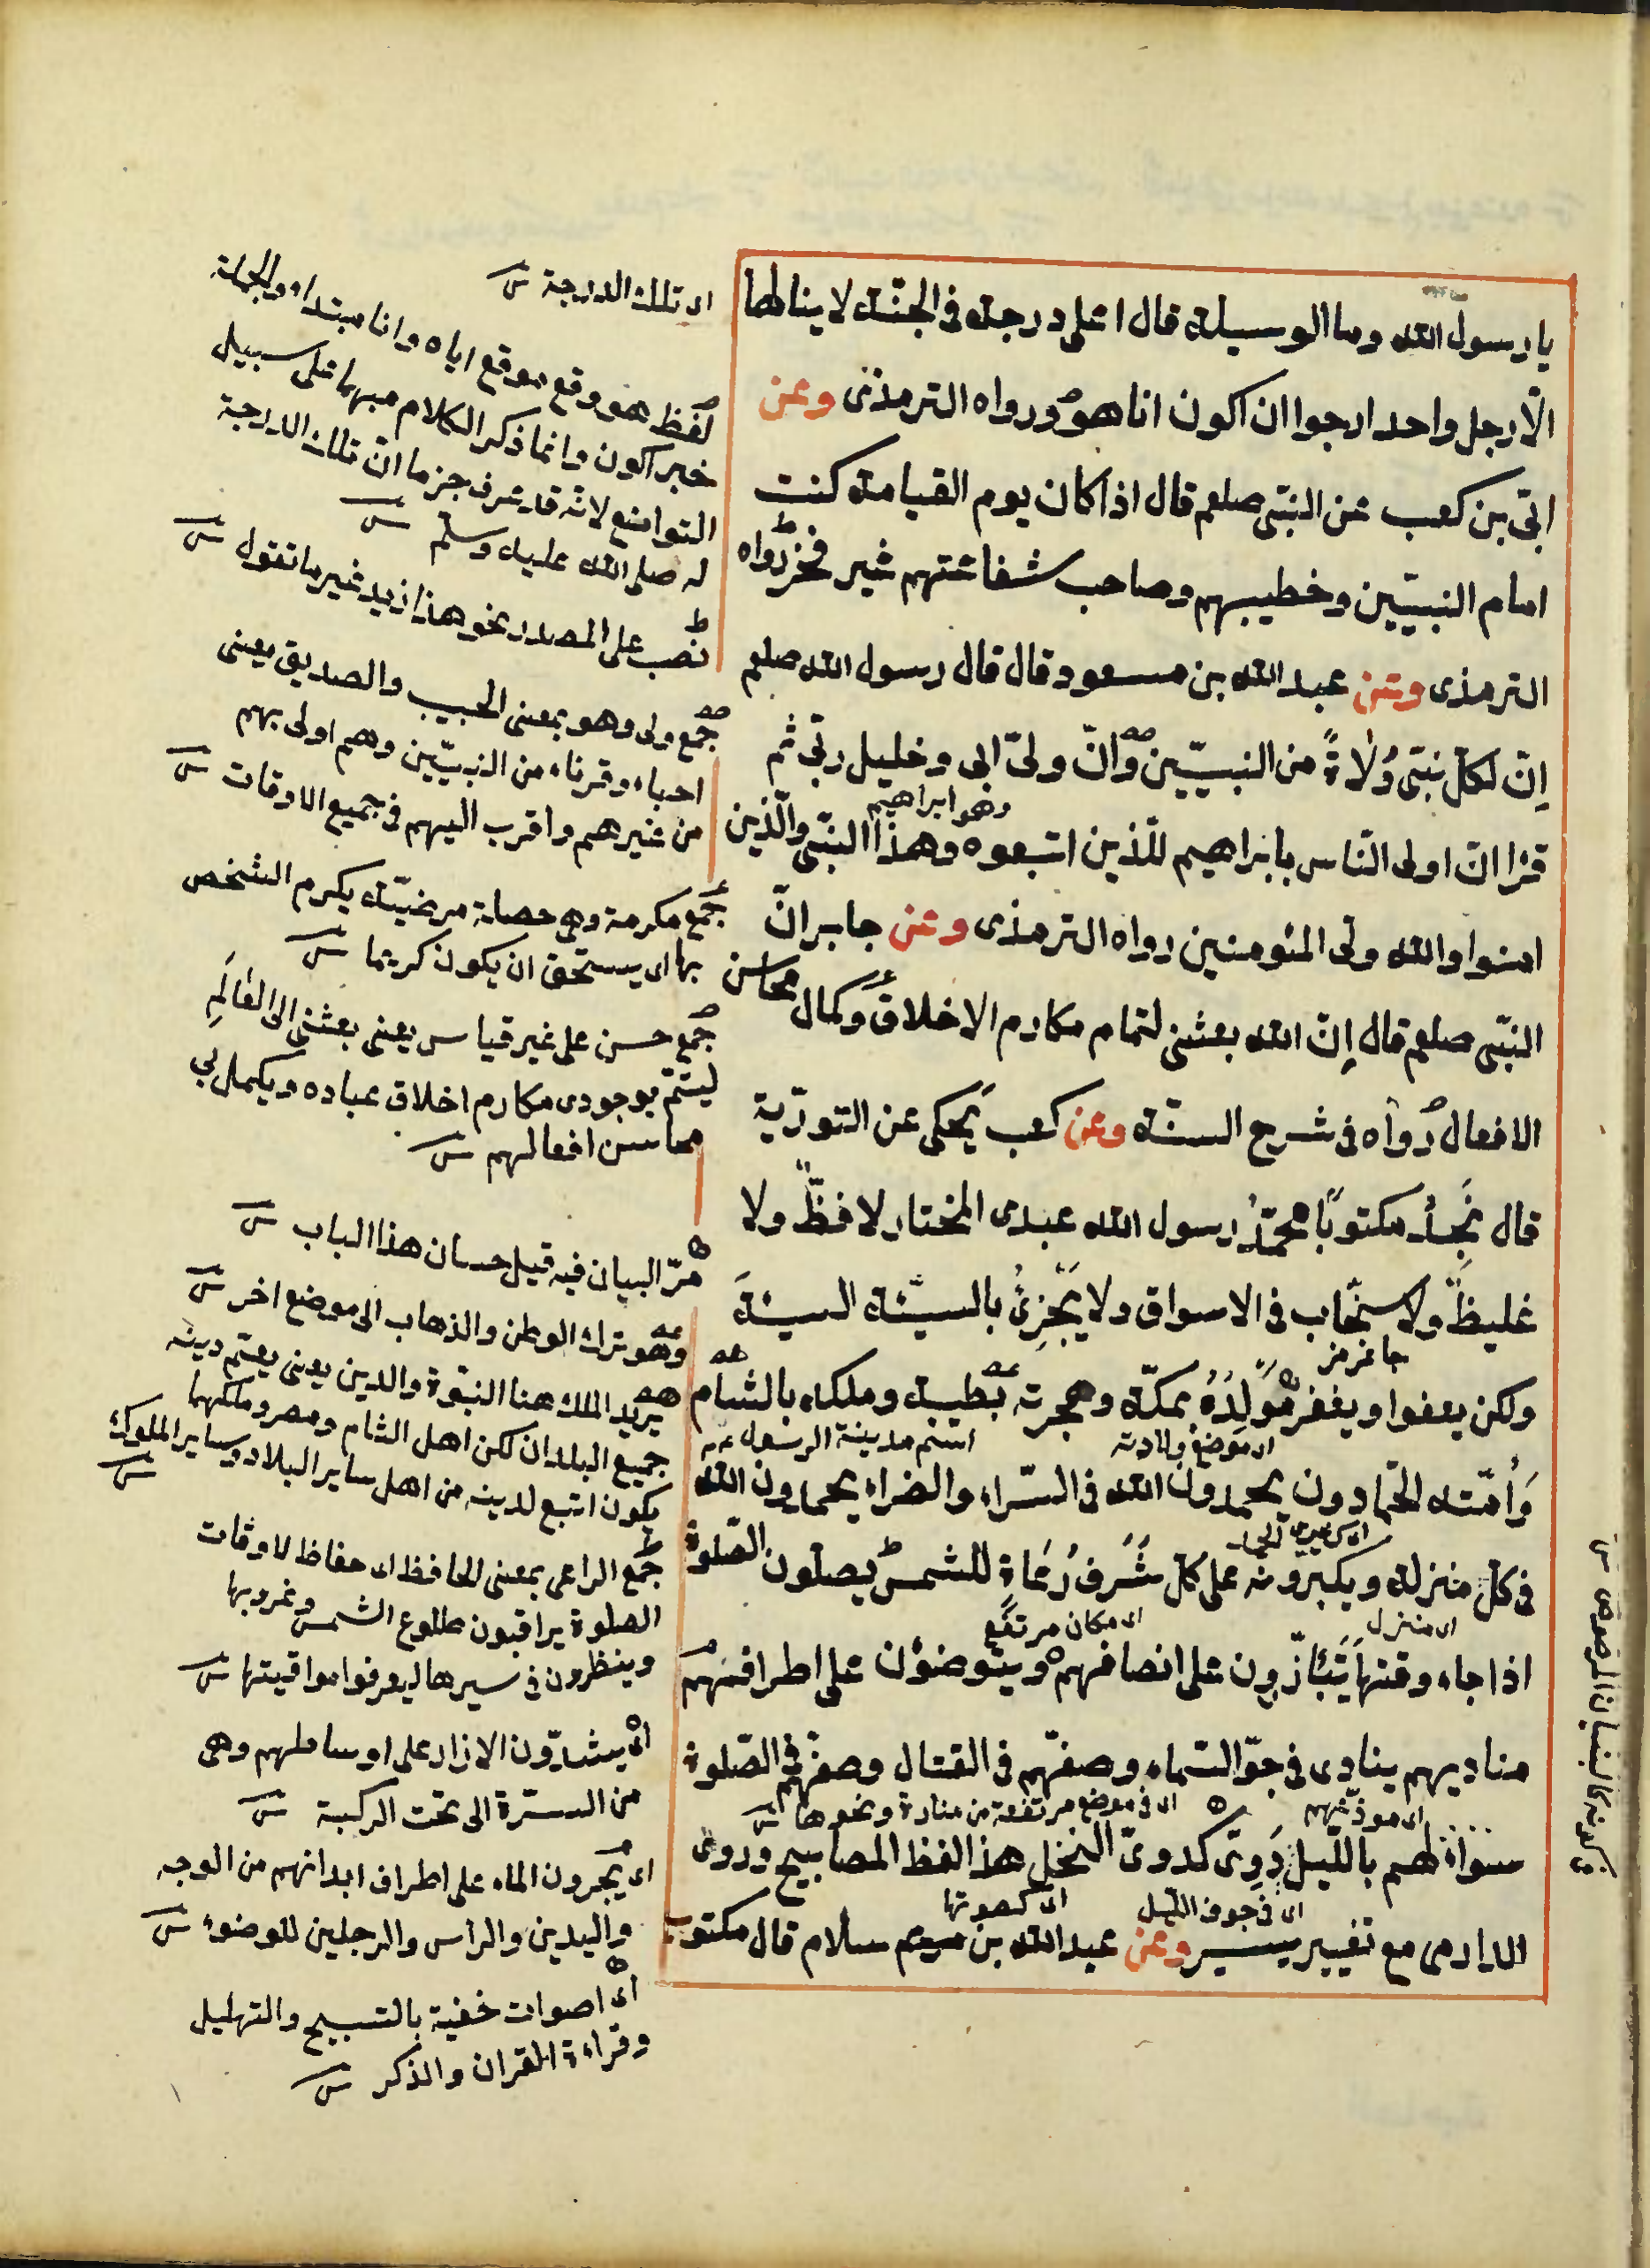 يا رسول الله وما الوسيلة قال اعلى درجة في الجنّة لا ينالها
الّا رجل واحد ارجوا ان اكون انا هو ورواه الترمذى وعن
ابّى بن كعب عن النبّى صلعم قال اذا كان يوم القيامة كنت
امام النبيّين وخطيبهم وصاحب شفاعتهم غير فخر رواه
الترمذى وعن عبد الله بن مسعود قال قال رسول الله صلعم
اِنّ لكلّ نبّى وُلاةً من النبيّين وانّ ولىّ ابى وخليل ربّى ثم
وهو ابراهيم
قرأ انّ اولى النّاس بابراهيم للّذين اتبعوه وهذا النبّى والّذين
امنوا والله ولى المئومنين رواه الترمذى وعن جابر انّ
النبّى صلعم قال اِنّ الله بعثنى لتمام مكارم الاخلاق وكمال محاسن
الافعال رواه فى شرح السنّة وعن كعب يَحكى عن التورٰية
قال نَجدُ مكتوبًا محمّدُ رسول الله عبدى المختار لا فظّ ولا
غليظ ولا سخّاب فى الاسواق ولا يَجْزِىُ بالسيّئة السيئةَ
جاغرمز
ولكن يعفوا ويغفر مَولِدُهُ بمكّة وهجرته بطيبة وملكه بالشام
اى موضع ولادته
اسم مدينة الرسول عم
وَاُمّته الحمّادون يحمدون الله فى السّراء والضراء يحمدون الله
فى كلّ منزلة ويكبرونه على كلّ شَرَف رُعاة للشمس يصلّون الصّلوة
اى منزل
اى مكان مرتفع
اذا جاء وقتها يَتَأزّرون على انصافهم ويتوضئون على اطرافهم
مناديهم ينادى فى جوّ السّماء وصفّهم فى القتال وصفّهم فى الصّلوة
اى موذّنهم
اى فى موضع مرتفعة من منارة ونحوها ش
سواء لهم بالليل دَوىّ كدوىّ النخل هذا لفظ المصابيح وروى
اى فى جوف الليل
اى كصوتها
الدارمى مع تغيير يسير وعن عبد الله بن سلام قال مكتوب
اى تلك الدرجة ش
لفظ هو وقع موقع اياه وانا مبتداء والجملة
خبر اكون وانما ذكر الكلام مبهما على سبيل
التواضع لانّه قد عرف جزما انّ تلك الدرجة
له صلى الله عليه وسلم ش
نصب على المصدر نحو هذا زيد غير ما تقول ش
جمع ولى وهو بمعنى الحبيب والصديق يعنى
احباء وقرناء من النبيّين وهم اولى بهم
من غيرهم واقرب اليهم فى جميع الاوقات ش
جمع مكرمة وهى خصلة مرضيّة يكرم الشخص
بها اى يستحق ان يكون كريما ش
جمع حسن على غير قياس يعنى بعثنى الى العٰالَمِ
ليتمّ بوجودى مكارم اخلاق عباده ويكمل بى
محاسن افعالهم ش
مرّ البيان فيه قبل حسان هذا الباب ش
وهو ترك الوطن والذهاب الى موضع اخر ش
يريد الملك هنا النبوّة والدين يعنى يعمّ دينه
جميع البلدان لكن اهل الشام ومصر وملكهما
يكون اتبع لدينه من اهل ساير البلاد وساير الملوك ش
جمع الراعى بمعنى الحافظ اى حفاظ لاوقات
الصلوة يراقبون طلوع الشمس وغروبها
وينظرون فى سيرها ليعرفوا مواقيتها ش
اى يشدّون الازار على اوساطهم وهى
من السرّة الى تحت الركبة ش
اى يجرون الماء على اطراف ابدانهم من الوجه
واليدين والراس والرجلين للوضوء ش
اى اصوات خفية بالتسبيح والتهليل
وقراءة القران والذكر ش